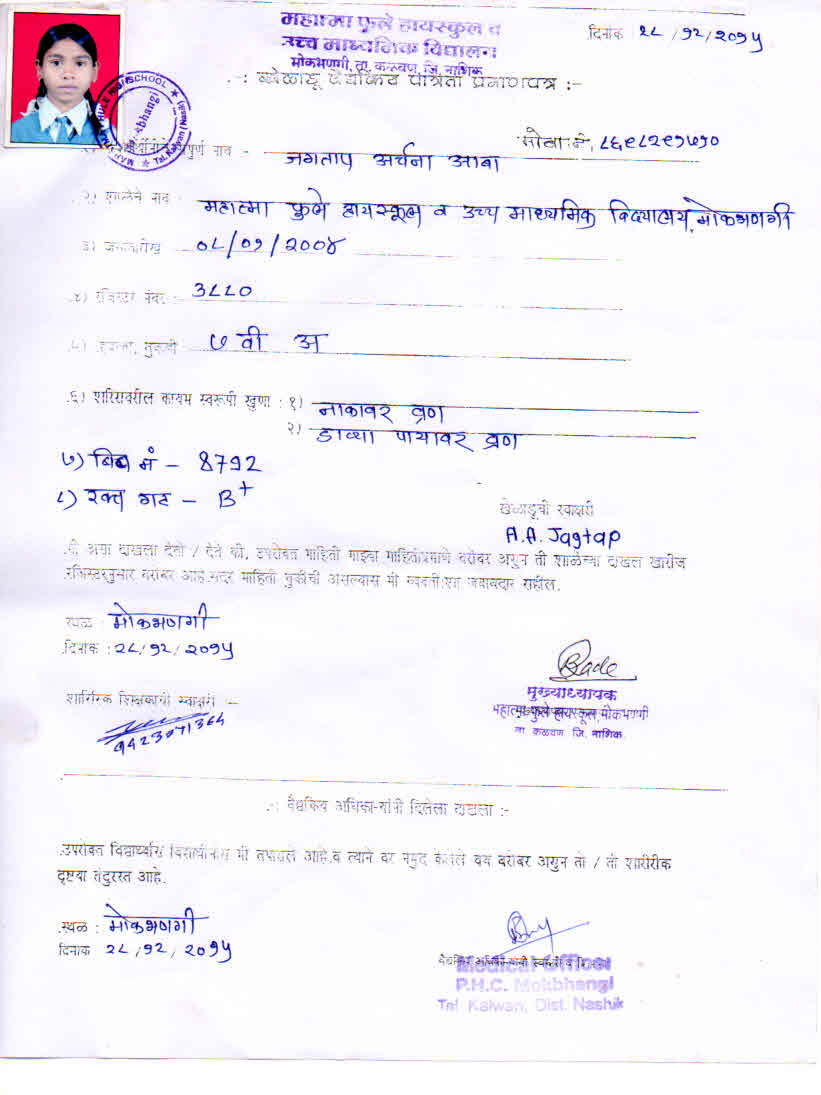 महात्मा फुले हायस्कुल व
उच्च माध्यमिक विद्यालय
मोकभणगी, ता. कळवण, जि. नाशिक
दिनांक २८/१२/२०१५
-: खेळाडू वैद्यकिय पात्रता प्रमाणपत्र :-
HULE HIGH SCHOOL
८६९८२९१५१०
पुर्ण नाव - जगताप अर्चना आबा
२) शाळेचे नाव महात्मा फुले हायस्कूल व उच्च माध्यमिक विद्यालय, मोकभणगी
३) जन्मतारीख ०८/०१/२००४
४) रजिस्टर नंबर - ३८८०
५) इयत्ता, तुकडी ७ वी अ
६) शरिरावरील कायम स्वरूपी खुणा : १) नाकावर व्रण
२) डाव्या पायावर व्रण
७) बिल नं - 8792
८) रक्त गट - B+
खेळाडूची स्वाक्षरी
A.A. Jagtap
मी असा दाखला देतो / देते की, उपरोक्त माहिती माझ्या माहितीप्रमाणे बरोबर असुन ती शाळेच्या दाखल खारीज
रजिस्टरनुसार बरोबर आहे. सदर माहिती चुकीची असल्यास मी व्यक्तीशः जबाबदार राहील.
स्थळ : मोकभणगी
दिनांक : २८/१२/२०१५
Bade
मुख्याध्यापक
महात्मा फुले हायस्कूल, मोकभणगी
ता. कळवण जि. नाशिक
शारिरिक शिक्षकाची स्वाक्षरी :-
9423071364
-: वैद्यकिय अधिका-यांनी दिलेला दाखला :-
उपरोक्त विद्यार्थ्यास मी तपासले आहे व त्याने वर नमुद केलेले वय बरोबर असुन तो / ती शारीरीक
दृष्टया तंदुरस्त आहे.
स्थळ : मोकभणगी
दिनांक २८/१२/२०१५
Medical Officer
P.H.C. Mokbhangi
Tal. Kalwan, Dist. Nashik